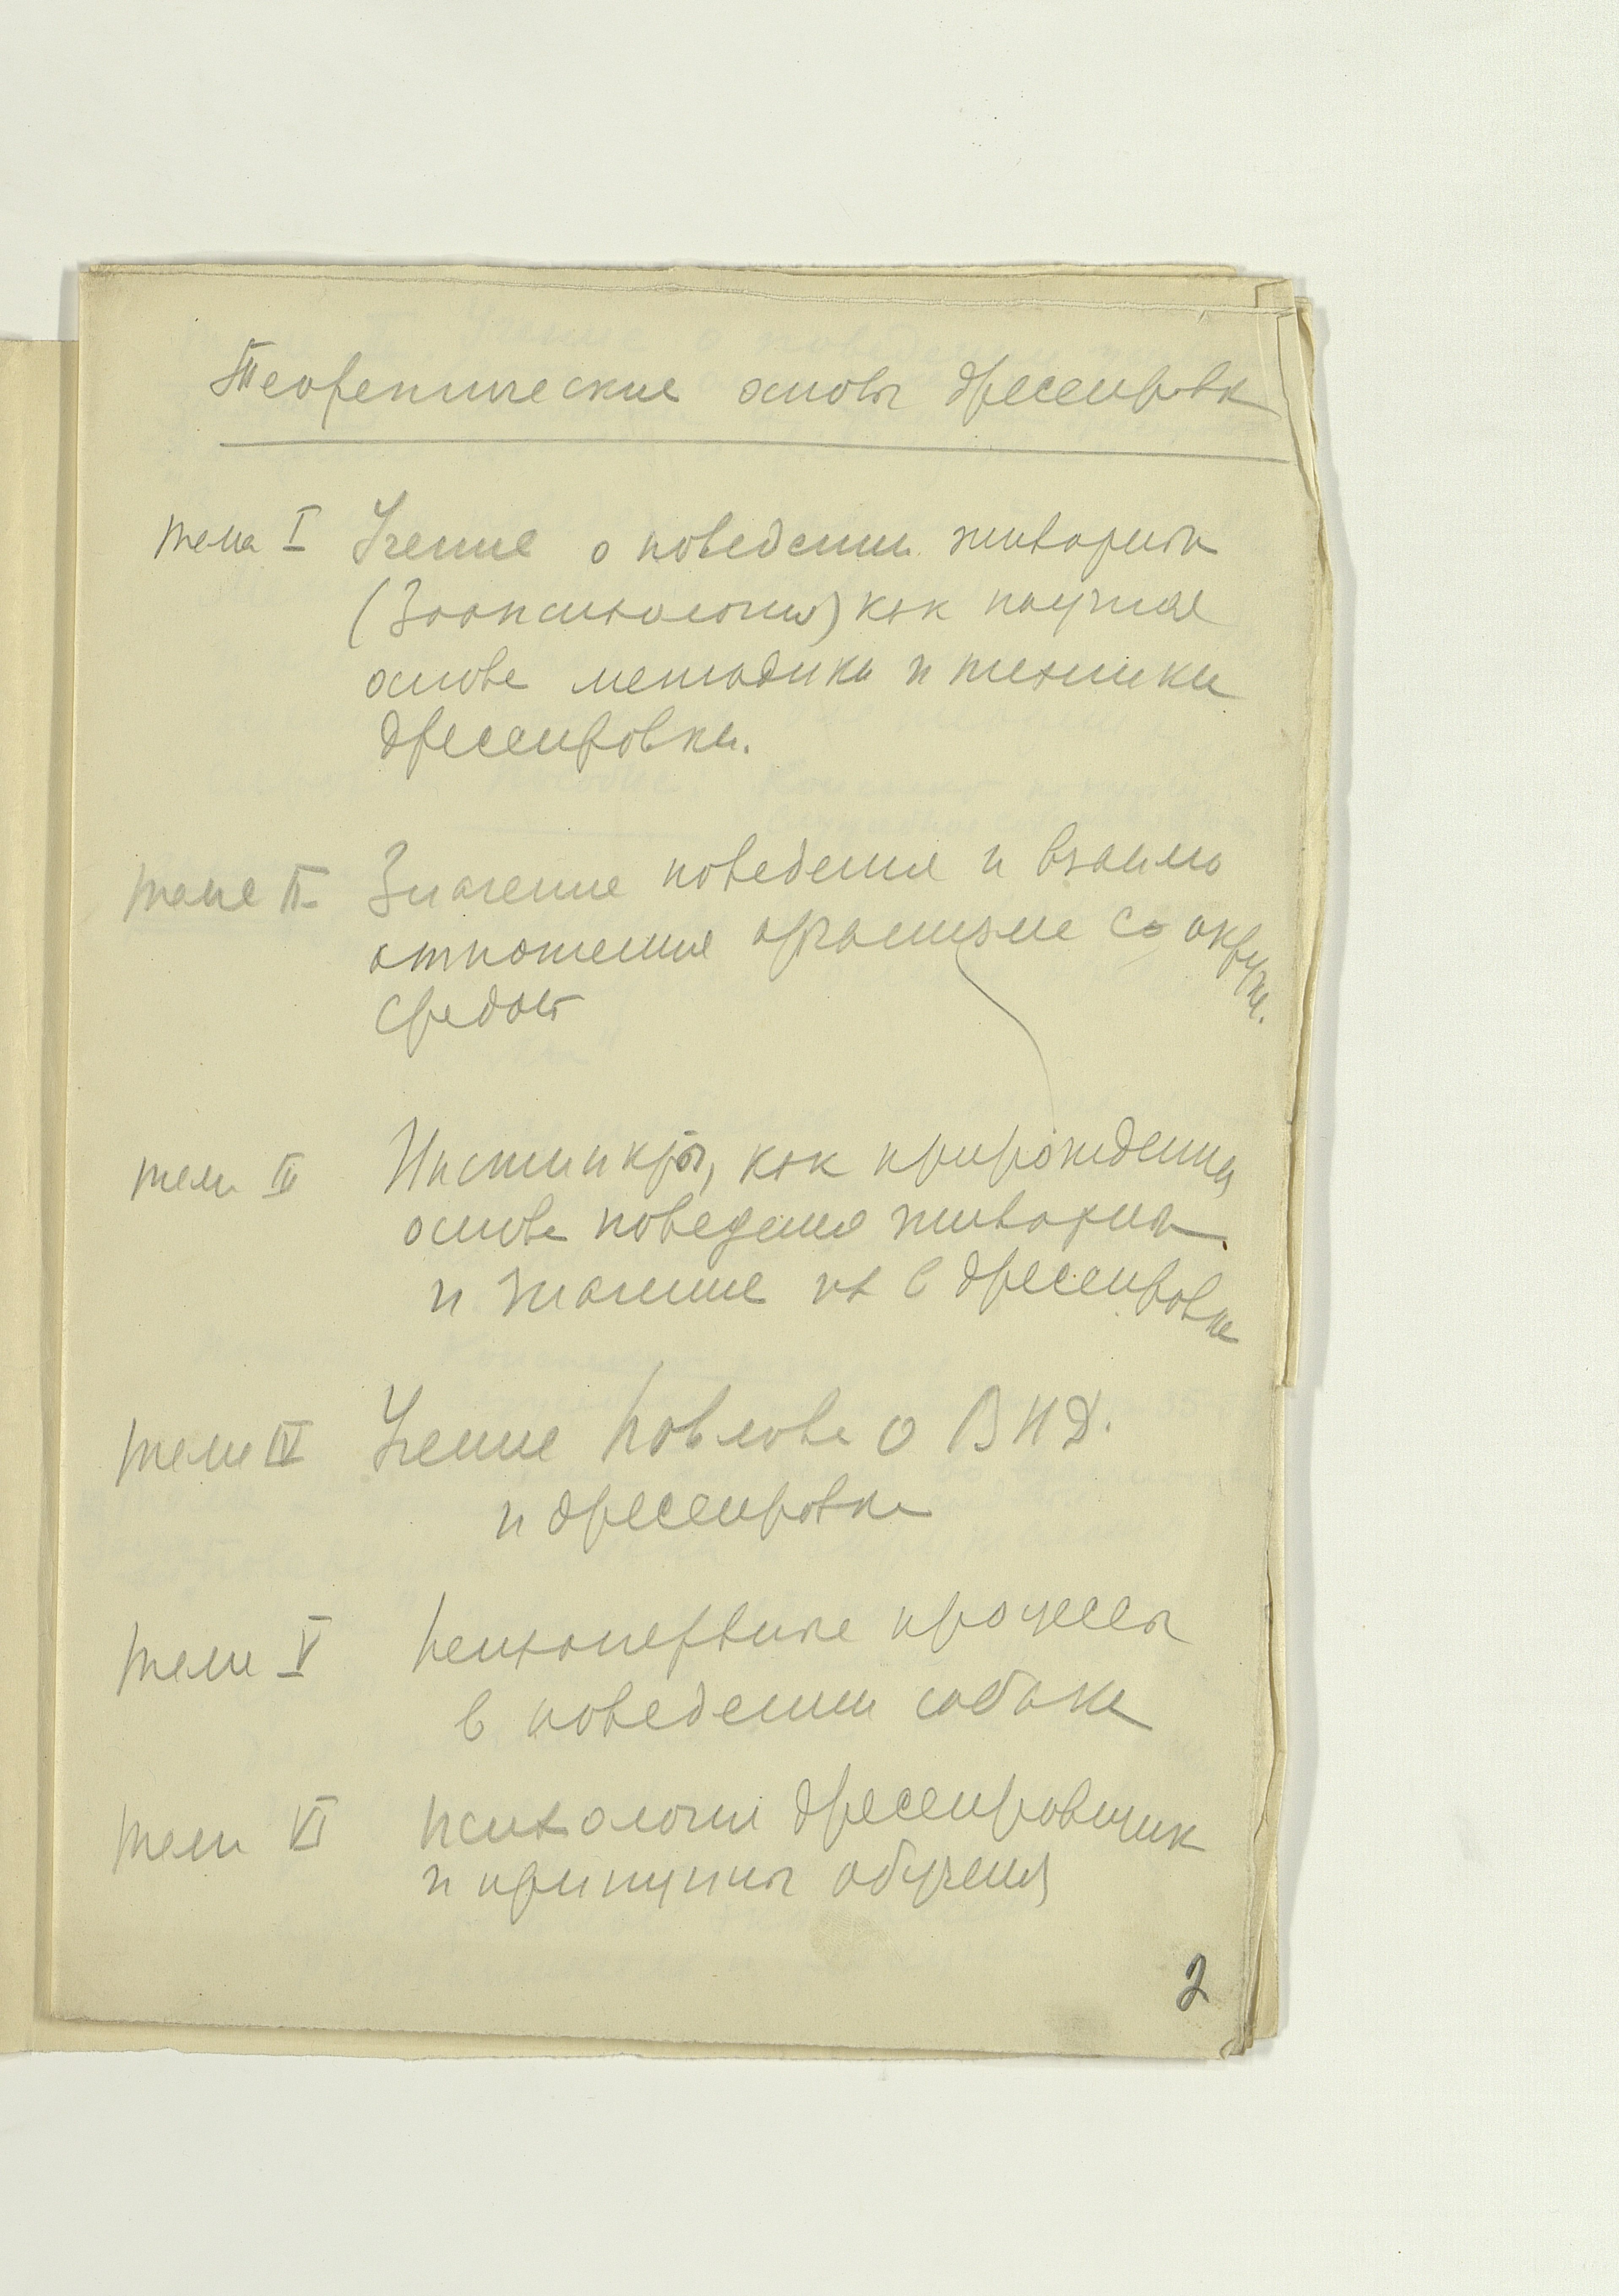 Теоретические основы дрессировк
Тема I Учение о поведении животных
(Зоопсихология) как научная
основа методики и техники
дрессировки.
Тема II Значение поведения и взаимо
отношения организма с окруж.
средой
Тема III Инстинкты, как прирожденная
основа поведения животных
и значение их в дрессировке
Тема IV Учение Павлова о ВНД.
и дрессировка
Тема V Психонервные процессы
в поведении собаки
Тема VI Психология дрессировщик
и принципы обучения
2